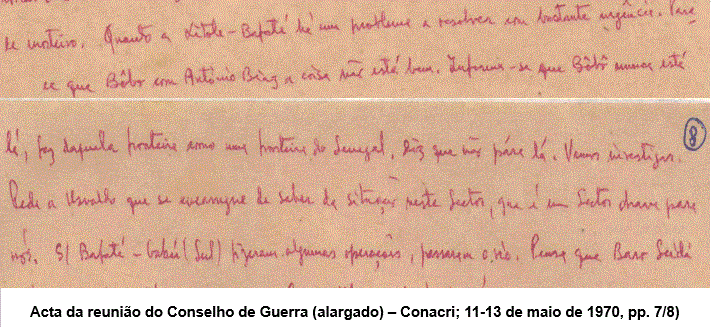 de morteiro. Quanto a Xitole-Bafatá há um problema a resolver com bastante urgência. Pare
ce que Bôbo com António Bana a coisa não está bem. Informa-se que Bôbô nunca está
8
lá, faz daquela fronteira como uma fronteira do Senegal. Diz que não pára lá. Vamos investigar.
Pede a Osvaldo que se encarregue de saber da situação neste Sector, que é um Sector chave para
nós. S/ Bafatá-Gabú (Sul) fizeram algumas operações, passaram o rio. Pensa que Baro Seidi
Acta da reunião do Conselho de Guerra (alargado) – Conacri; 11-13 de maio de 1970, pp. 7/8)